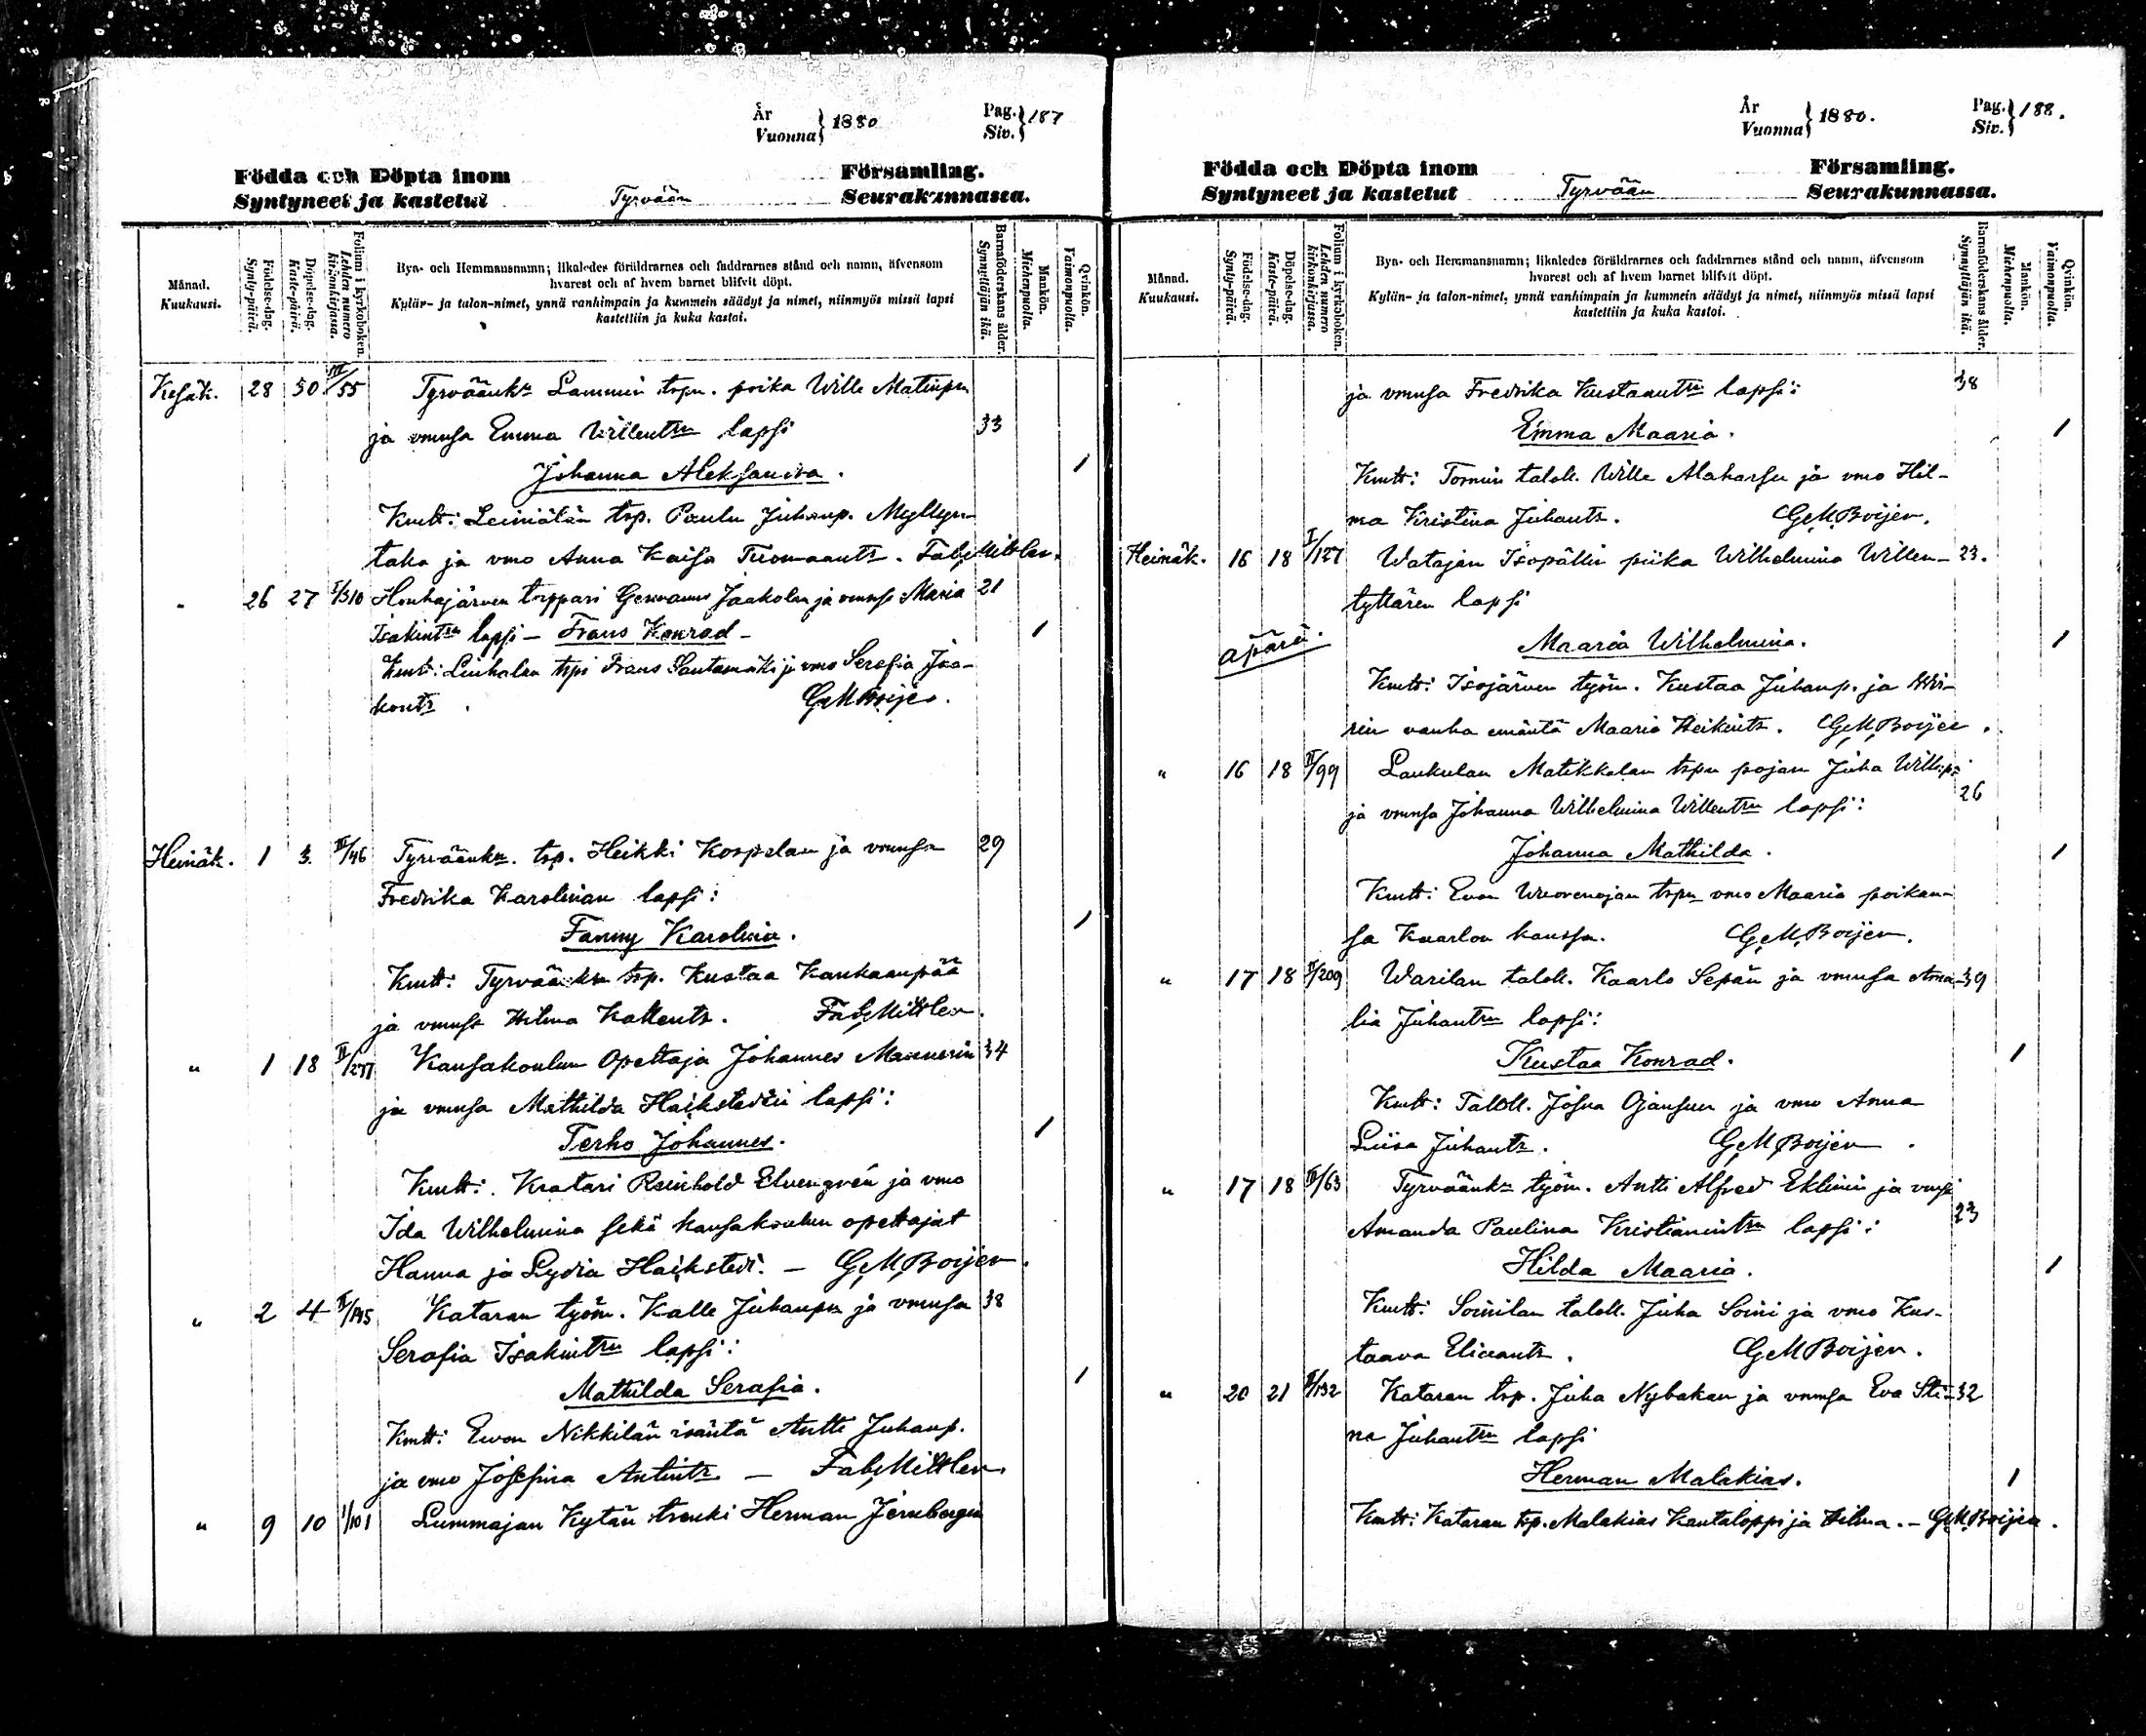 År
Vuonna } 1880
Pag.
Siv. } 187
Födda och Döpta inom Församling.
Syntyneet ja kastetut Tyrvään Seurakunnassa.
Månad.
Kuukausi.
Födelse-dag.
Synty-päivä.
Döpelse-dag.
Kaste-päivä.
Folium i kyrkoboken.
Lehden numero kirkonkirjassa.
Bya- och Hemmansnamn; likaledes föräldrarnes och faddrarnes stånd och namn, äfvensom
hvarest och af hvem barnet blifvit döpt.
Kylän- ja talon-nimet, ynnä vanhimpain ja kummein säädyt ja nimet, niinmyös missä lapsi
kastettiin ja kuka kastoi.
Barnaföderskans ålder.
Synnyttäjän ikä.
Mankön.
Miehenpuolia.
Qvinkön.
Vaimonpuolia.
Kesäk. 28 30 III/55 Tyrväänk. Lammin trpn. poika Wille Matinpn
ja vmnsa Emma Willentrn lapsi 33
Johanna Aleksandra. 1
Kmtt: Leiniälän trp. Paulu Juhanp. Myllyn-
taka ja vmo Anna Kaisa Tuomaantr. Fab. Mittler.
" 26 27 I/310 Houhajärven torppari Germanus Jaakolan ja vmnsa Maria 21
Isakintrn lapsi – Frans Konrad – 1
Kmtt: Liuhalan trpi Frans Santamäki ja vmo Serafia Jaa-
kontr. GMBoijer.
Heinäk. 1 3 III/46 Tyrväänk. trp. Heikki Kospelan ja vmnsa 29
Fredrika Karolinan lapsi:
Fanny Karolina. 1
Kmtt: Tyrväänk trp. Kustaa Kankaanpää
ja vmnsa Hilma Kallentr. Fab. Mittler.
" 1 18 II/277 Kansakoulun Opettaja Johannes Mannerin 34
ja vmnsa Mathilda Hajkstedtin lapsi:
Terho Johannes. 1
Kmtt: Kratari Reinhold Elvengrén ja vmo
Ida Wilhelmina sekä kansakoulun opettajat
Hanna ja Lydia Hajkstedt. – GMBoijer.
" 2 4 II/145 Kataran työm. Kalle Juhanpn ja vmnsa 38
Serafia Isakintrn lapsi:
Mathilda Serafia. 1
Kmtt: Ewon Nikkilän isäntä Antti Juhanp.
ja vmo Josefina Antintr. – Fab. Mittler.
" 9 10 I/101 Lummajan Kytän trenki Herman Jernbergin
År
Vuonna } 1880.
Pag.
Siv. } 188.
Födda och Döpta inom Församling.
Syntyneet ja kastetut Tyrvään Seurakunnassa.
Månad.
Kuukausi.
Födelse-dag.
Synty-päivä.
Döpelse-dag.
Kaste-päivä.
Folium i kyrkoboken.
Lehden numero kirkonkirjassa.
Bya- och Hemmansnamn; likaledes föräldrarnes och faddrarnes stånd och namn, äfvensom
hvarest och af hvem barnet blifvit döpt.
Kylän- ja talon-nimet, ynnä vanhimpain ja kummein säädyt ja nimet, niinmyös missä lapsi
kastettiin ja kuka kastoi.
Barnaföderskans ålder.
Synnyttäjän ikä.
Mankön.
Miehenpuolia.
Qvinkön.
Vaimonpuolia.
ja vmnsa Fredrika Kustaantrn lapsi: 38
Emma Maaria. 1
Kmtt: Tomin taloll. Wille Alaharsu ja vmo Hil-
ma Kristina Juhantr. GMBoijer.
Heinäk. 16 18 I/127 Watajan Isopällin piika Wilhelmina Willen- 23.
tyttären lapsi
äpärä. Maaria Wilhelmina. 1
Kmtt: Isojärven työm. Kustaa Juhanp. ja
rin vanha emäntä Maaria Heikintr. GMBoijer.
" 16 18 II/99 Laukulan Matikkalan trpn pojan Juha Willepn
ja vmnsa Johanna Wilhelmina Willentrn lapsi: 26
Johanna Mathilda. 1
Kmtt: Evon Wuorenojan trpn vmo Maaria poikan-
sa Kaarlon kanssa. GMBoijer.
" 17 18 II/209 Warilan taloll. Kaarlo Sepän ja vmnsa Ama- 39
lia Juhantrn lapsi:
Kustaa Konrad. 1
Kmtt: Taloll. Josua Ojansuu ja vmo Anna
Liisa Juhantr. GMBoijer.
" 17 18 III/63 Tyrväänk työm. Antti Alfred Eklinin ja vmnsa
Amanda Paulina Kristianintrn lapsi: 23
Hilda Maaria. 1
Kmtt: Soinilan taloll. Juha Soini ja vmo Kus-
taava Eliaantr. GMBoijer.
" 20 21 II/132 Kataran trp. Juha Nybakan ja vmnsa Eva Sti- 32
na Juhantrn lapsi
Herman Malakias. 1
Kmtt: Kataran trp. Malakias Kantaloppi ja Hilma. – GMBoijer.